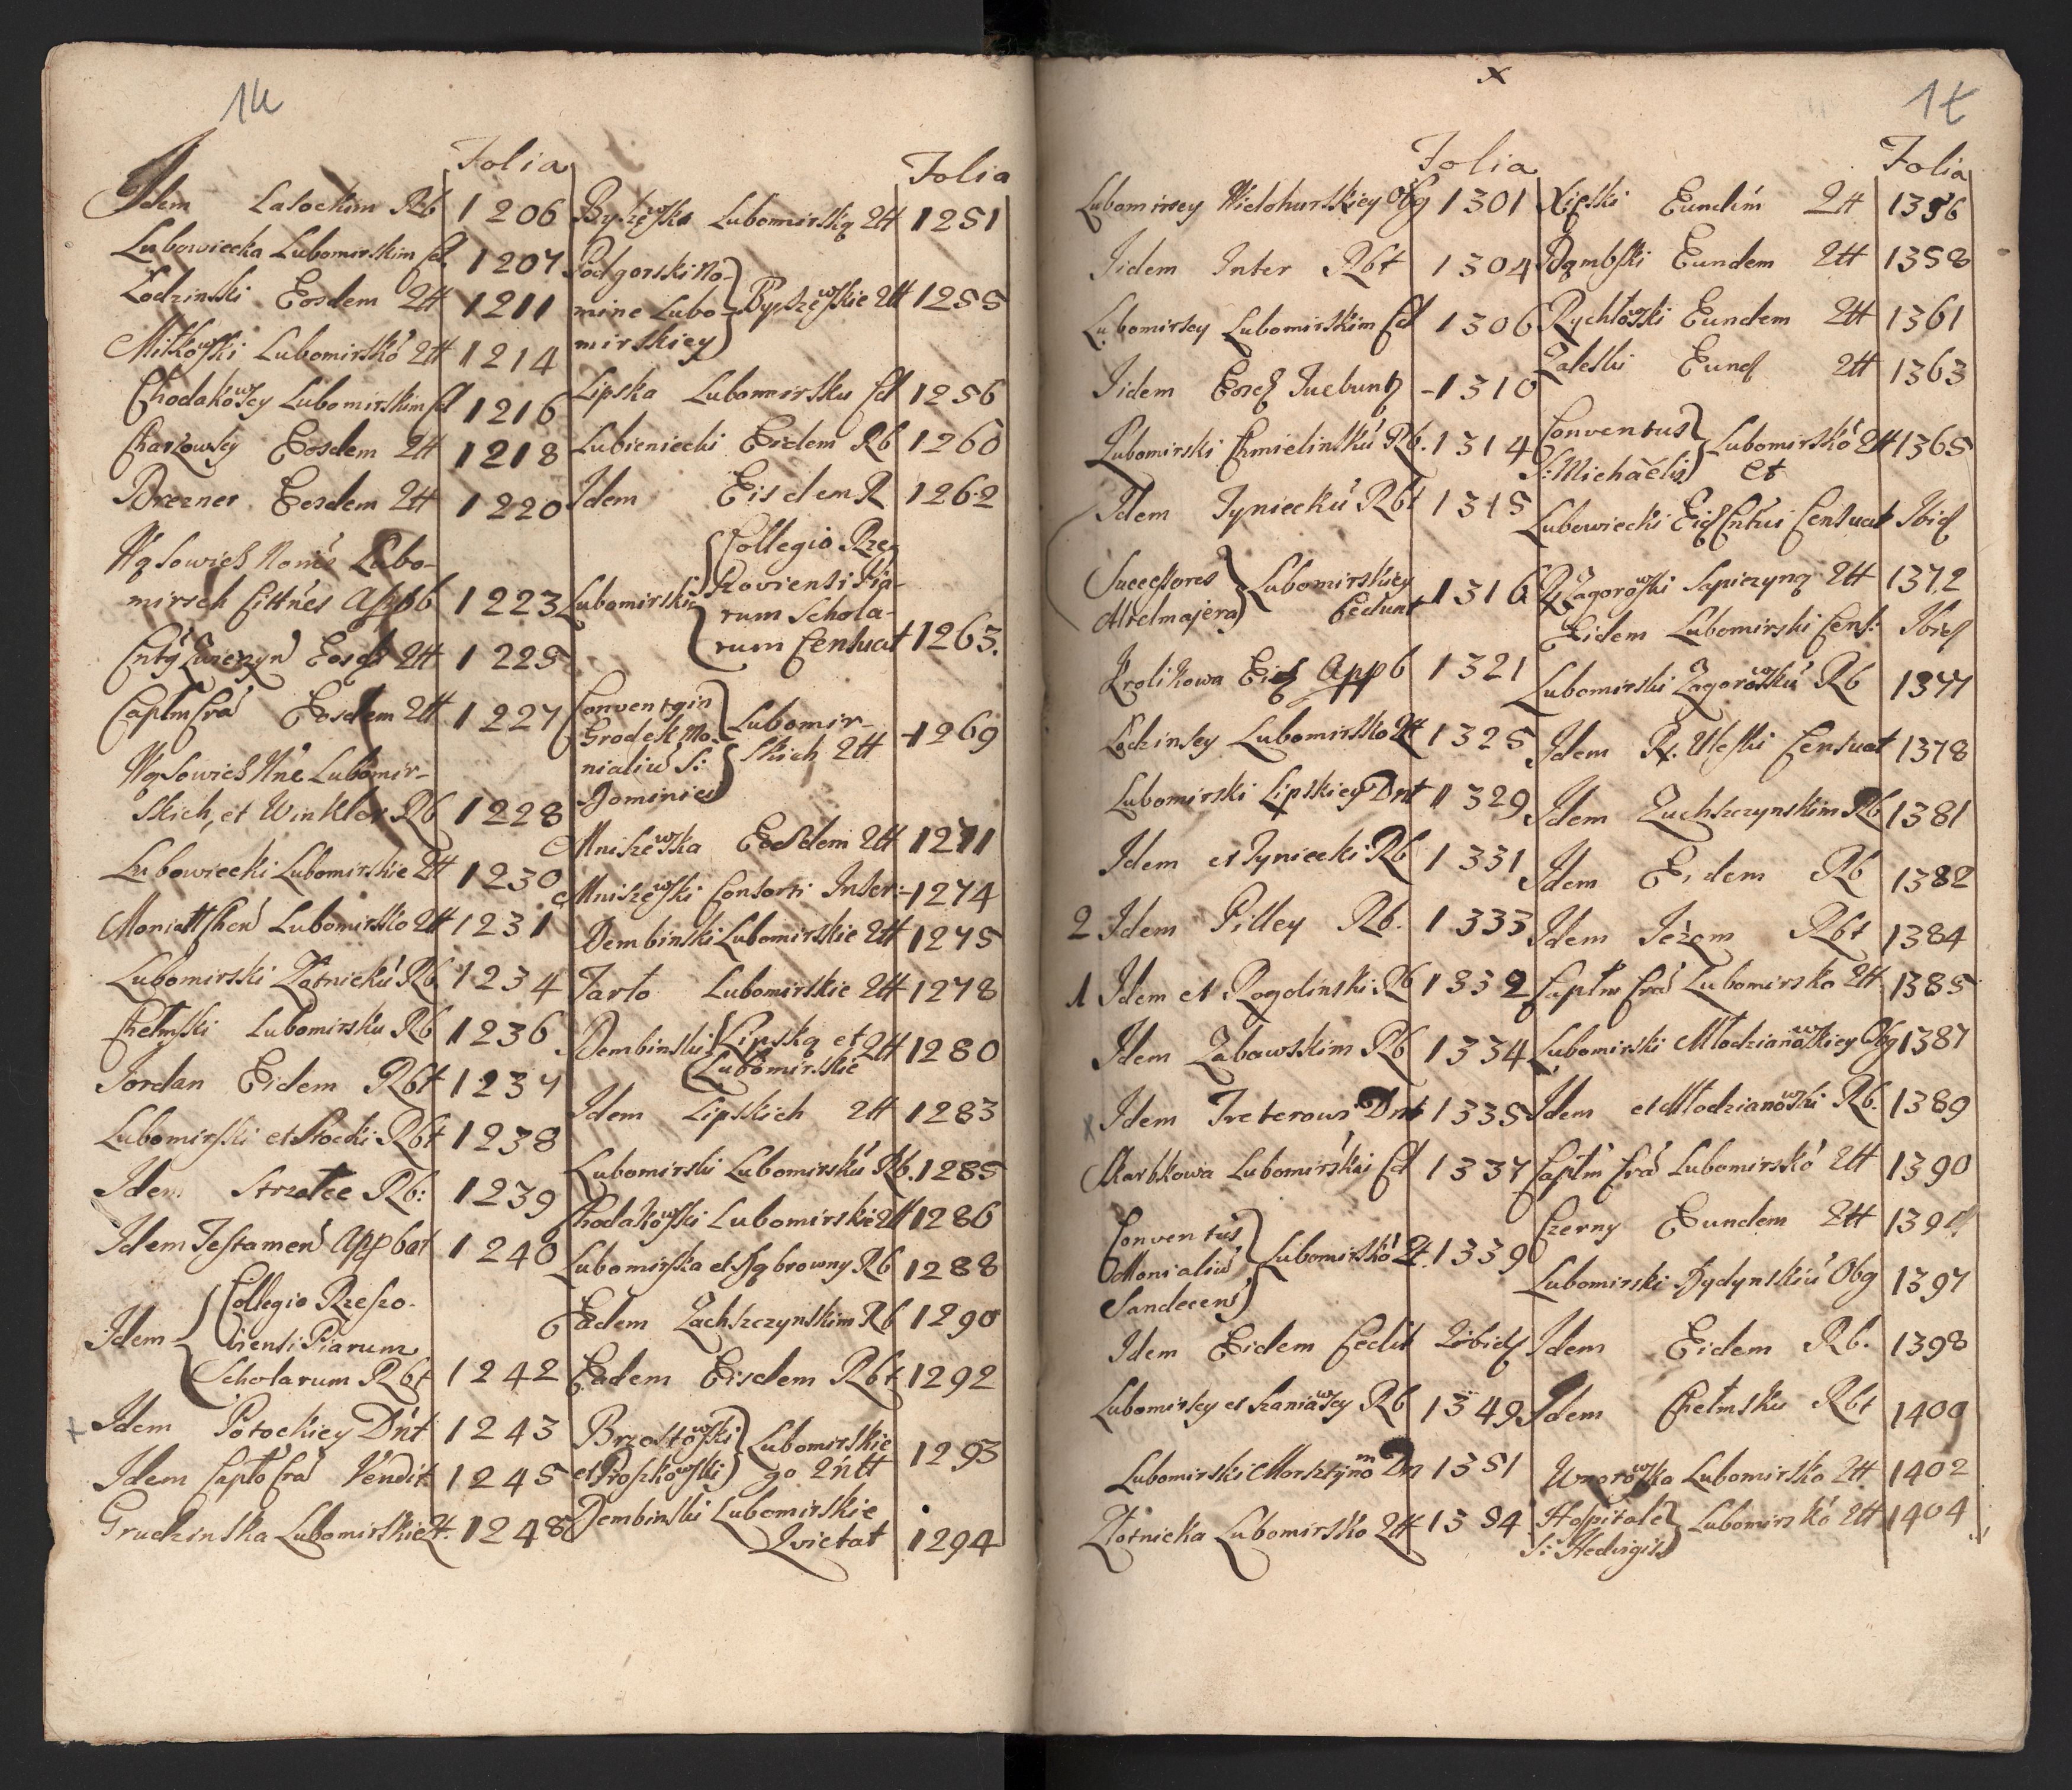 14
Folia
Idem Lasockim Rb 1206
Lubowiecka Lubomirskim Cd. 1207
Łodzinski Eosdem 2tt 1211
Miłkowski Lubomirskó 2tt 1214
Chodakowscy Lubomirskim Cd 1216
Charzowscy Eosdem 2tt 1218
Brezner Eosdem 2tt 1220
Wąsowich Nomē Lubo-
mirsch Cittnes Appb 1223
Eosdē 2tt 1225
Captm Cra Eosdem 2tt 1227
Wąsowich Nñe Lubomir-
skich, et Winkler Rb 1228
Lubowiecki Lubomirskie 2tt 1230
Lubomirsko 2tt 1231
Lubomirski Złotnickú Rb 1234
Chełmski Lubomirsku Rb 1236
Jordan Eidem Rbt 1237
Lubomirski et Stocki Rbt 1238
Idem Strzałce Rb: 1239
Idem Testamen Appbat 1240
Idem
Collegio Rzeszo-
viensi Piarum
Scholarum Rbt 1242
x Idem Potockiey Dńt 1243
Idem Capto Cra Vendit 1245
Grudzinska Lubomirskie 2t. 1248
Folia
Byszewska Lubomirską 2tt 1251
Podgorski No-
mine Lubo-
mirskiey
Byszewskie 2tt 1255
Lipska Lubomirsku Cd 1256
Lubieniecki Eidem Rb 1260
Idem Eisdem R 1262
Lubomirski
Collegio Rze-
szoviensi Pia-
rum Schola-
rum Censuat 1263.
Convent gin
Grodek Mo-
nialiu S:
Dominici
Lubomir-
skich 2tt 1269
Mniszewska Eosdem 2tt 1271
Mniszewski Consorti Inser: 1274
Dembinski Lubomirskie 2tt 1275
Tarło Lubomirskie 2tt 1278
Dembinski
Lipską et
Lubomirskie 2tt 1280
Idem Lipskich 2tt 1283
Lubomirski Lubomirskú Rb. 1285
Chodakowski Lubomirskie 2tt 1286
Lubomirska et Dąbrowny Rb 1288
Eadem Zachszczynskim Rb 1290
Eadem Eisdem Rbt 1292
Brzostowski
et Proszkowski
Lubomirskie
go 2ńtt 1293
Dembinski Lubomirskie
Qvietat 1294
x
1t
Folia
Lubomirscy Wielohurskiey Obg 1301
Iidem Inter Rbt 1304
Lubomirscy Lubomirskim Cd 1306
Iidem Eosd 1310
Lubomirski Chmielinskú Rb. 1314
Idem Tynieckú Rbt 1315
Successores
Altelmajera
Lubomirskiey
Cedunt 1316
Krolikowa Eid Appb 1321
Łodzinscy Lubomirsko 2tt 1325
Lubomirski Lipskiey Dnt 1329
Idem et Tyniecki Rb 1331
2 Idem Pilley Rb. 1333
1 Idem et Rogolinski Rb 1332
Idem Zabawskim Rb 1334
x Idem Treterowi Dnt 1335
Skarbkowa Lubomirskiej Cd 1337
Conventus
Monialiu
Sandecens
Lubomirskó 2t. 1339
Idem Eidem Cedit Ibid
Lubomirscy et Szaniawscy Rb 1349
Lubomirski Morsztynom Dn 1351
Złotnicka Lubomirsko 2tt 1354
Folia
Xięski Eundem 2tt 1356
Dąmbski Eundem 2tt 1358
Rychłowski Eundem 2tt 1361
Zaleski Eund 2tt 1363
Conventus
S: Michaëlis
Lubomirskó 2tt 1365
et
Lubowiecki Eid Cntui Censuat Ibid
Zagorowski Sapieżyną 2tt 1372
Eidem Lubomirski Cens: Ibid
Lubomirski Zagorowskú Rb 1377
Idem R. Uleski Censuat 1378
Idem Zuchszczynskim Rb 1381
Idem Eidem Rb 1382
Idem Jeżem Rbt 1384
Captm Cra Lubomirsko 2tt. 1385
Lubomirski Młodzianowskiey Obg 1387
Idem et Młodzianowski Rb. 1389
Captm Cra Lubomirskó 2tt 1390
Czerny Eundem 2tt 1394
Lubomirski Dydynskiú Obg 1397
Idem Eidem Rb. 1398
Idem Chełmsku Rbt 1400
Wnorowska Lubomirsko 2tt 1402
Hospitale
S: Hedvigis
Lubomirskó 2tt 1404